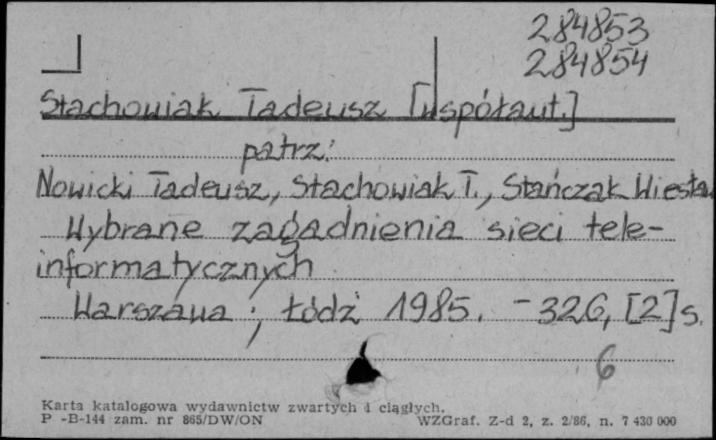 284853
284854
Stachowiak Tadeusz [współaut.]
patrz:
Nowicki Tadeusz, Stachowiak T., Stańczak Wiesław
Wybrane zagadnienia sieci tele-
informatycznych
Warszawa ; Łódź 1985. - 326, [2] s.
6
Karta katalogowa wydawnictw zwartych i ciągłych.
P -B-144 zam. nr 865/DW/ON WZGraf. Z-d 2, z. 2/86, n. 7 430 000